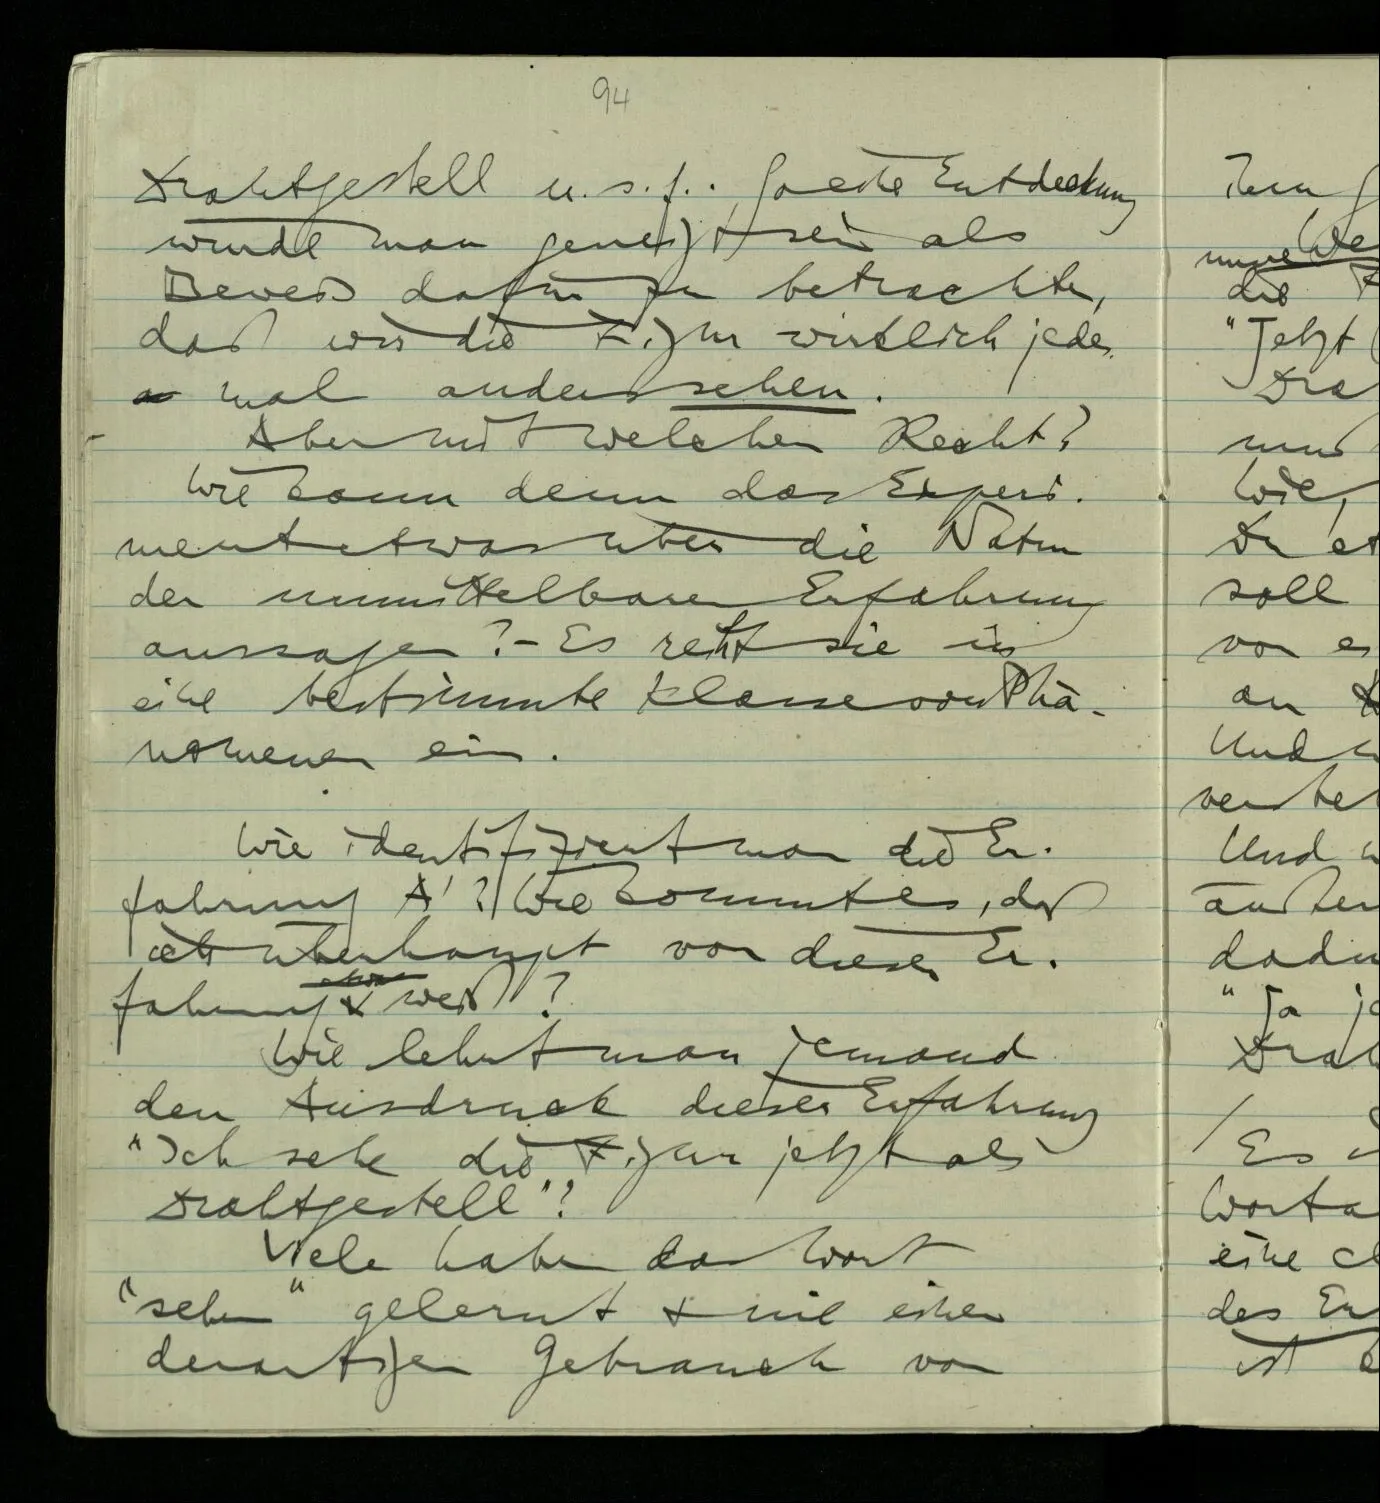 94
Drahtgestell u.s.f.. Entdeckung
würde man geneigt sein als
Beweis dafür zu betrachten,
daß wir die Figur wirklich jedes
mal anders sehen.
Aber mit welchem Recht?
Wie kann denn das Experi-
ment etwas über die Natur
der unmittelbaren Erfahrung
aussagen? – Es reiht sie in
eine bestimmte Klasse von Phä-
nomenen ein.
Wie identifiziert man die Er-
fahrung A'? Wie kommt es, daß
ich überhaupt von dieser Er-
fahrung weiß?
Wie lehrt man jemand
den Ausdruck dieser Erfahrung
"Ich sehe die Figur jetzt als
Drahtgestell"?
Viele haben das Wort
"sehen" gelernt & nie einen
derartigen Gebrauch von
ihm
meine
die
"Jetzt
Dra
muß
Wie,
Du et
soll
von es
an
Und
verste
Und
äußer
dadu
"Ja
Drah
/ Es
Worta
eine
des
ist